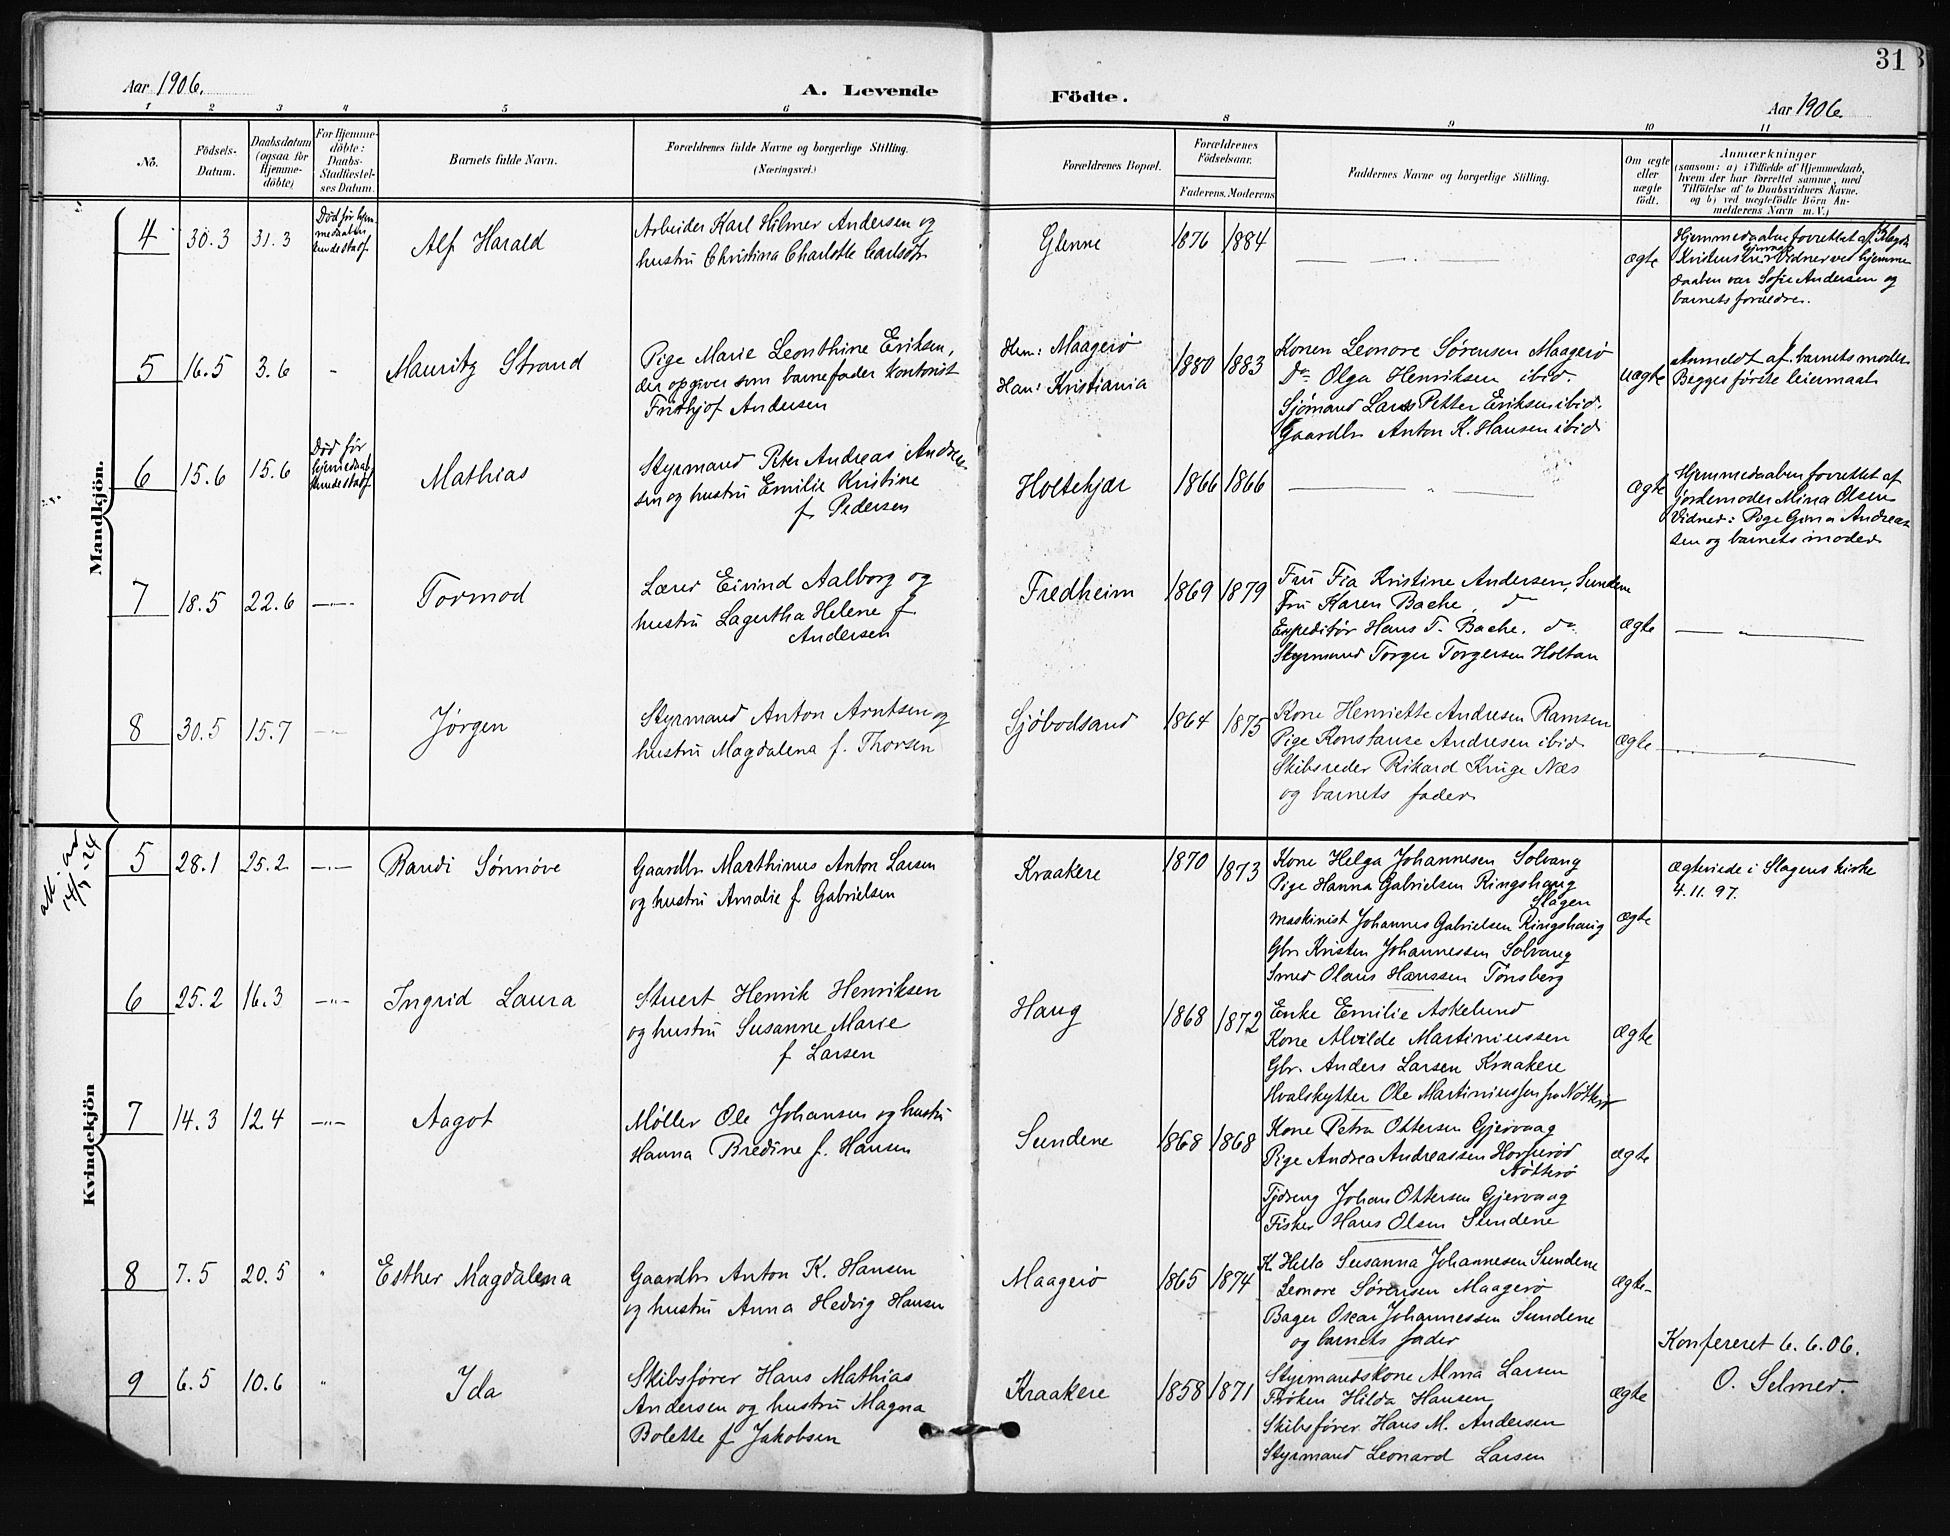 31
Aar 1906.
A. Levende
Födte.
Aar 1906.
1 2 3 4 5 6 8 9 10 11
No.
Födsels-
Datum.
Daabsdatum
(ogsaa for
Hjemme-
döbte)
For Hjemme-
döbte:
Daabs-
Stadfæstel-
ses Datum.
Barnets fulde Navn.
Forældrenes fulde Navne og borgerlige Stilling.
(Næringsvei.)
Forældrenes Bopæl.
Forældrenes
Födselsaar.
Faderens. Moderens
Faddernes Navne og borgerlige Stilling.
Om ægte
eller
uægte
födt.
Anmærkninger
(saasom: a) i Tilfælde af Hjemmedaab,
hvem der har forrettet samme, med
Tilföielse af to Daabsvidners Navne.
og b) ved uægtefödte Börn An-
melderens Navn m. V.)
Mandkjön.
4 30.3 31.3
Død før hjem-
medaaben
kunde stadf.
Alf Harald
Arbeider Karl Hilmer Andersen og
hustru Christina Charlotte Carlsdtr
Glenne
1876 1884
ægte
Hjemmedaaben forrettet af
Vidner ved hjemme
daaben var Sofie Andersen og
barnets forældre.
5 16.5 3.6 -
Mauritz Strand
Pige Marie Leonthine Eriksen,
der opgiver som barnefader kontorist
Frithjof Andersen
Hun: Maagerö
Han: Kristiania
1880 1883
Konen Leonore Sørensen Maagerö
Do Olga Henriksen ibid.
Sjømand Lars Petter Eriksen ibid.
Gaardbr Anton K. Hansen ibid.
uægte
Anmeldt af barnets moder
Begges første leiermaal
6 15.6 15.6
Død før
hjemmedaab
kunde stadf.
Mathias
Styrmand Peter Andreas Andrea-
sen og hustru Emilie Kristine
f. Pedersen
Holtekjær
1866 1866
ægte
Hjemmedaaben forrettet af
jordemoder Mina Olsen
Vidner: Pige Gina Andreas-
sen og barnets moder
7 18.5 22.6 — " —
Tormod
Lærer Eivind Aalborg og
hustru Lagertha Helene f
Andersen
Fredheim
1869 1879
Fru Fia Kristine Andersen, Sundene
Fru Karen Bache, do
Expeditør Hans T. Bache. do
Styrmand Torger Torgersen Holtan
ægte
— " —
8 30.5 15.7 — " —
Jørgen
Styrmand Anton Arntsen og
hustru Magdalena f. Thorsen
Sjöbodsand
1864 1875
Kone Henriette Andresen Ramsen
Pige Konstanse Andresen ibid.
Skibsreder Rikard Kruge Næs
og barnets fader
ægte
— " —
Kvindekjön
att. av
14/7 -24
5 28.1 25.2 — " —
Randi Sønnøve
Gaardbr. Marthinus Anton Larsen
og hustru Amalie f Gabrielsen
Kraakere
1870 1873
Kone Helga Johannesen Solvang
Pige Hanna Gabrielsen Ringshaug
Slagen
Maskinist Johannes Gabrielsen Ringshaug
Gbr. Kristen Johannessen Solvang
Smed Olaus Hanssen Tønsberg
ægte
Ægteviede i Slagens kirke
4.11.97.
6 25.2 16.3 — " —
Ingrid Laura
Stuert Henrik Henriksen
og hustru Susanne Marie
f Larsen
Haug
1868 1872
Enke Emilie Askelund
Kone Alvilde Martiniussen
Gbr. Anders Larsen Kraakere
Hvalskytter Ole Martiniussen fr Nötterö
ægte
7 14.3 12.4 — " —
Aagot
Møller Ole Johansen og hustru
Hanna Bredine f. Hansen
Sundene
1868 1868
Kone Petra Ottersen Gjervaag
Pige Andrea Andreassen
Nötterö
Johan Ottersen Gjervaag
Fisker Hans Olsen Sundene
ægte
8 7.5 20.5 "
Esther Magdalena
Gaardbr. Anton K. Hansen
og hustru Anna Hedvig Hansen
Maagerö
1865 1874
K. Susanna Johannesen Sundene
Leonore Sørensen Maagerö
Bager Oscar Johannessen Sundene
og barnets fader
ægte
9 6.5 10.6 "
Ida
Skibsfører Hans Mathias
Andersen og hustru Magna
Bolette f Jakobsen
Kraakere
1858 1871
Styrmandskone Alma Larsen
Frøken Hilda Hansen
Skibsfører Hans M. Andersen
Styrmand Leonard Larsen
ægte
Konfereret 6.6.06.
O. Selmer.